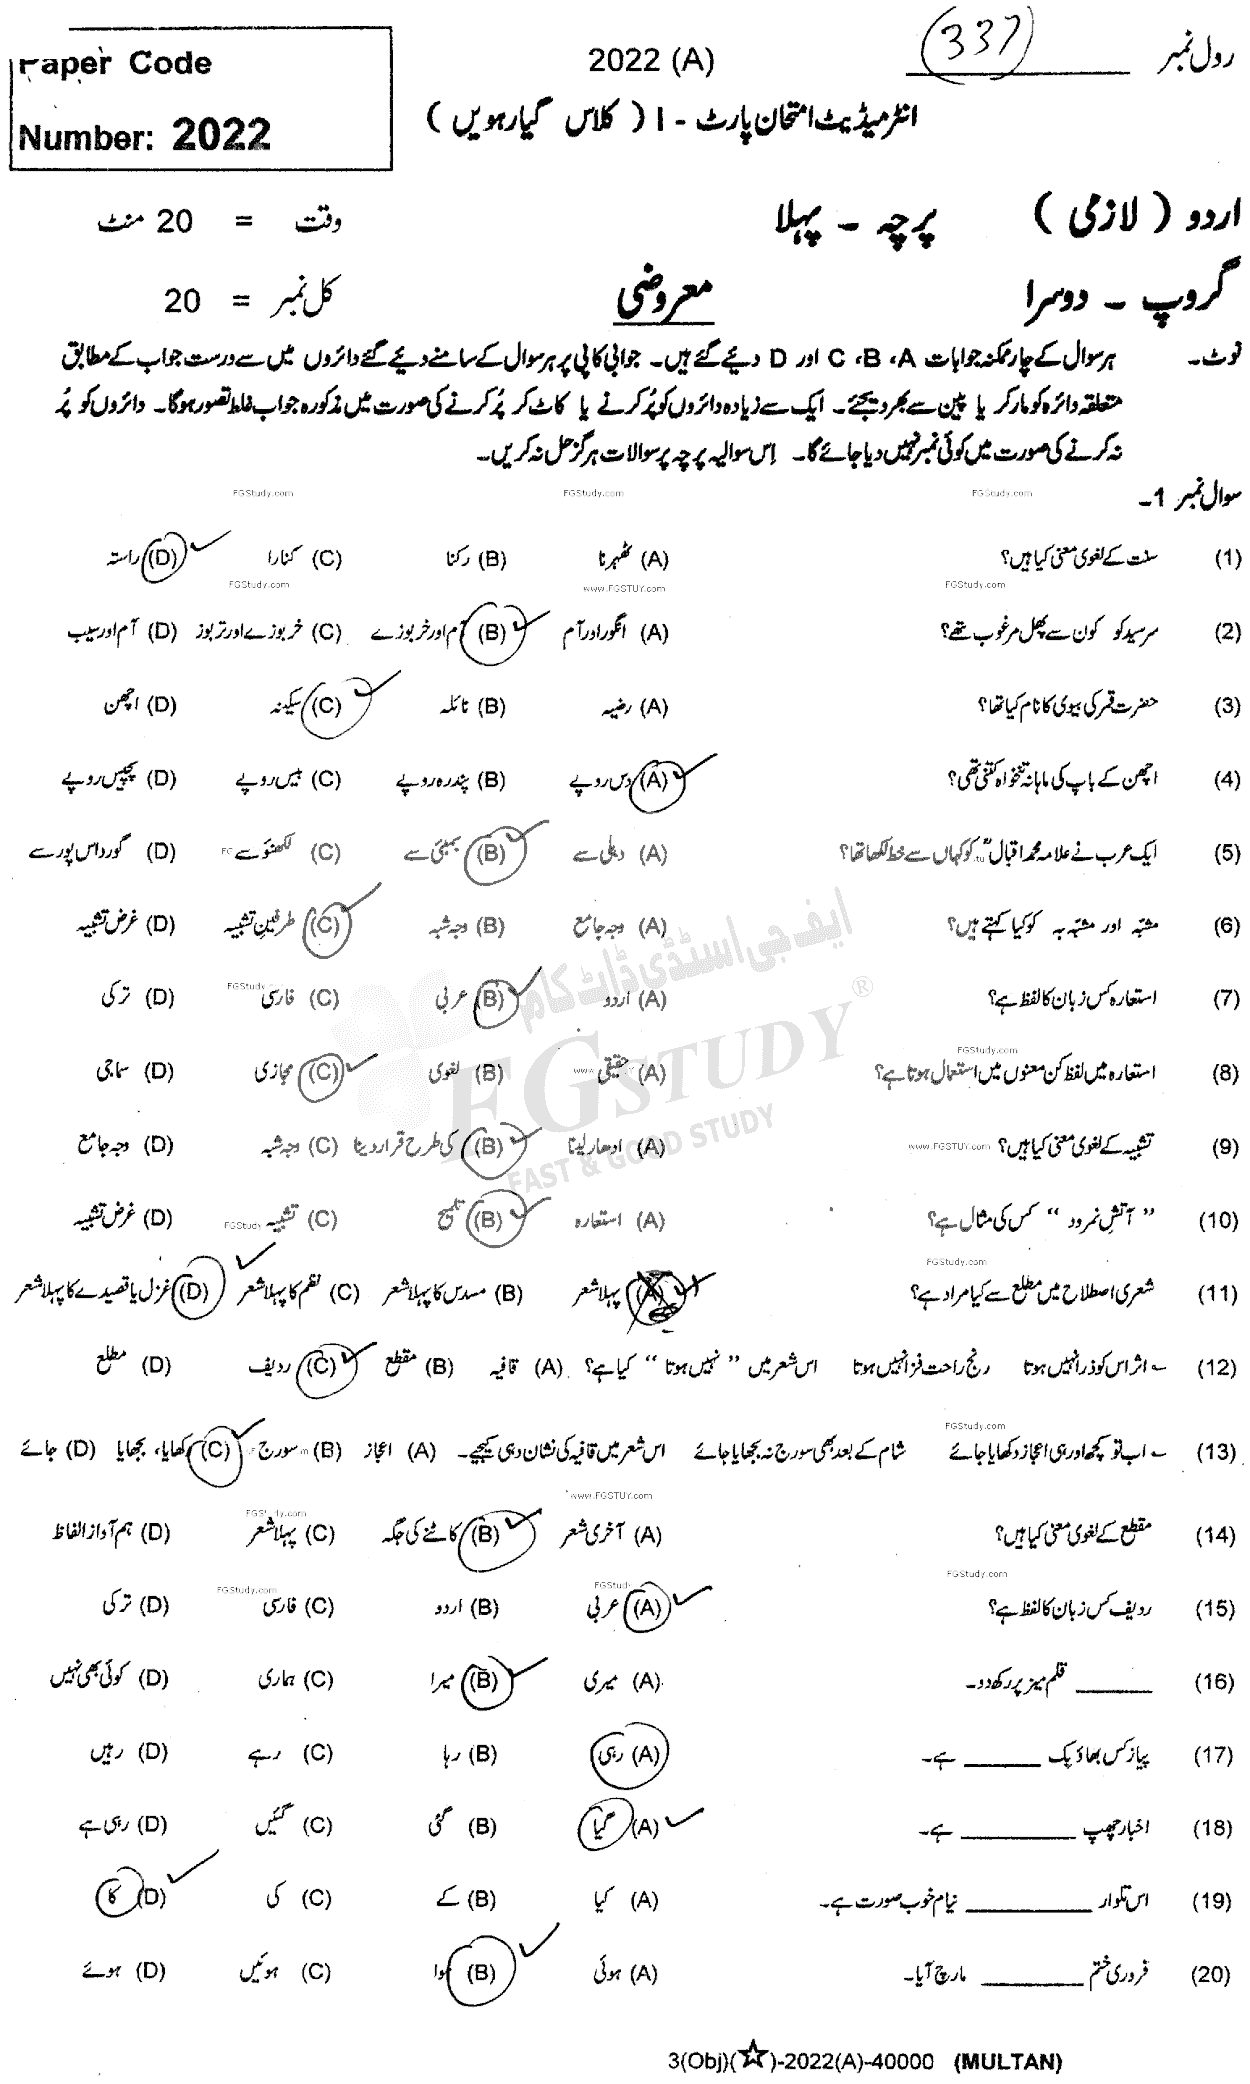 رول نمبر (337)
2022 (A)
Paper Code
Number: 2022
انٹرمیڈیٹ امتحان پارٹ - I ( کلاس گیارہویں )
اردو ( لازمی ) پرچہ - پہلا وقت = 20 منٹ
گروپ - دوسرا معروضی کل نمبر = 20
نوٹ۔ ہر سوال کے چار ممکنہ جوابات A، B، C اور D دیئے گئے ہیں۔ جوابی کاپی پر ہر سوال کے سامنے دیئے گئے دائروں میں سے درست جواب کے مطابق
متعلقہ دائرہ کو مارکر یا پین سے بھر دیجئے۔ ایک سے زیادہ دائروں کو پُر کرنے یا کاٹ کر پُر کرنے کی صورت میں مذکورہ جواب غلط تصور ہوگا۔ دائروں کو پُر
نہ کرنے کی صورت میں کوئی نمبر نہیں دیا جائے گا۔ اِس سوالیہ پرچہ پر سوالات ہرگز حل نہ کریں۔
سوال نمبر 1۔
FGStudy.com FGStudy.com FGStudy.com
(1) سنت کے لغوی معنی کیا ہیں؟ (A) ٹھہرنا (B) رکنا (C) کنارا (D) راستہ
FGStudy.com www.FGSTUY.com FGStudy.com
(2) سرسید کو کون سے پھل مرغوب تھے؟ (A) انگور اور آم (B) آم اور خربوزے (C) خربوزے اور تربوز (D) آم اور سیب
(3) حضرت قمر کی بیوی کا نام کیا تھا؟ (A) رضیہ (B) نائلہ (C) سکینہ (D) اچھن
(4) اچھن کے باپ کی ماہانہ تنخواہ کتنی تھی؟ (A) دس روپے (B) پندرہ روپے (C) بیس روپے (D) پچیس روپے
(5) ایک عرب نے علامہ محمد اقبالؒ کو کہاں سے خط لکھا تھا؟ (A) دہلی سے (B) بمبئی سے (C) لکھنؤ سے (D) گورداس پور سے
(6) مشبّہ اور مشبّہ بہ کو کیا کہتے ہیں؟ (A) وجہ جامع (B) وجہ شبہ (C) طرفینِ تشبیہ (D) غرض تشبیہ
ایف جی اسٹڈی ڈاٹ کام
(7) استعارہ کس زبان کا لفظ ہے؟ (A) اردو (B) عربی (C) فارسی (D) ترکی
FGStudy.com
FGSTUDY®
(8) استعارہ میں لفظ کن معنوں میں استعمال ہوتا ہے؟ (A) حقیقی (B) لغوی (C) مجازی (D) سماجی
FGStudy.com
FAST & GOOD STUDY
(9) تشبیہ کے لغوی معنی کیا ہیں؟ (A) ادھار لینا (B) کی طرح قرار دینا (C) وجہ شبہ (D) وجہ جامع
www.FGSTUY.com
(10) "آتشِ نمرود" کس کی مثال ہے؟ (A) استعارہ (B) تلمیح (C) تشبیہ (D) غرض تشبیہ
FGStudy.com
(11) شعری اصطلاح میں مطلع سے کیا مراد ہے؟ (A) پہلا شعر (B) مسدس کا پہلا شعر (C) نظم کا پہلا شعر (D) غزل یا قصیدے کا پہلا شعر
(12) ؎ اثر اس کو ذرا نہیں ہوتا رنج راحت فزا نہیں ہوتا اس شعر میں "نہیں ہوتا" کیا ہے؟ (A) قافیہ (B) مقطع (C) ردیف (D) مطلع
FGStudy.com
(13) ؎ اب تو کچھ اور ہی اعجاز دکھایا جائے شام کے بعد بھی سورج نہ بجھایا جائے اس شعر میں قافیہ کی نشان دہی کیجیے۔ (A) اعجاز (B) سورج (C) دکھایا، بجھایا (D) جائے
www.FGSTUY.com
(14) مقطع کے لغوی معنی کیا ہیں؟ (A) آخری شعر (B) کاٹنے کی جگہ (C) پہلا شعر (D) ہم آواز الفاظ
FGStudy.com FGStudy.com
(15) ردیف کس زبان کا لفظ ہے؟ (A) عربی (B) اردو (C) فارسی (D) ترکی
(16) ______ قلم میز پر رکھ دو۔ (A) میری (B) میرا (C) ہماری (D) کوئی بھی نہیں
(17) پیاز کس بھاؤ بک ______ ہے۔ (A) رہی (B) رہا (C) رہے (D) رہیں
(18) اخبار چھپ ______ ہے۔ (A) گیا (B) گئی (C) گئیں (D) رہی ہے
(19) اس تلوار ______ نیام خوب صورت ہے۔ (A) کیا (B) کے (C) کی (D) کا
(20) فروری ختم ______ مارچ آیا۔ (A) ہوئی (B) ہوا (C) ہوئیں (D) ہوئے
3(Obj)(☆)-2022(A)-40000 (MULTAN)